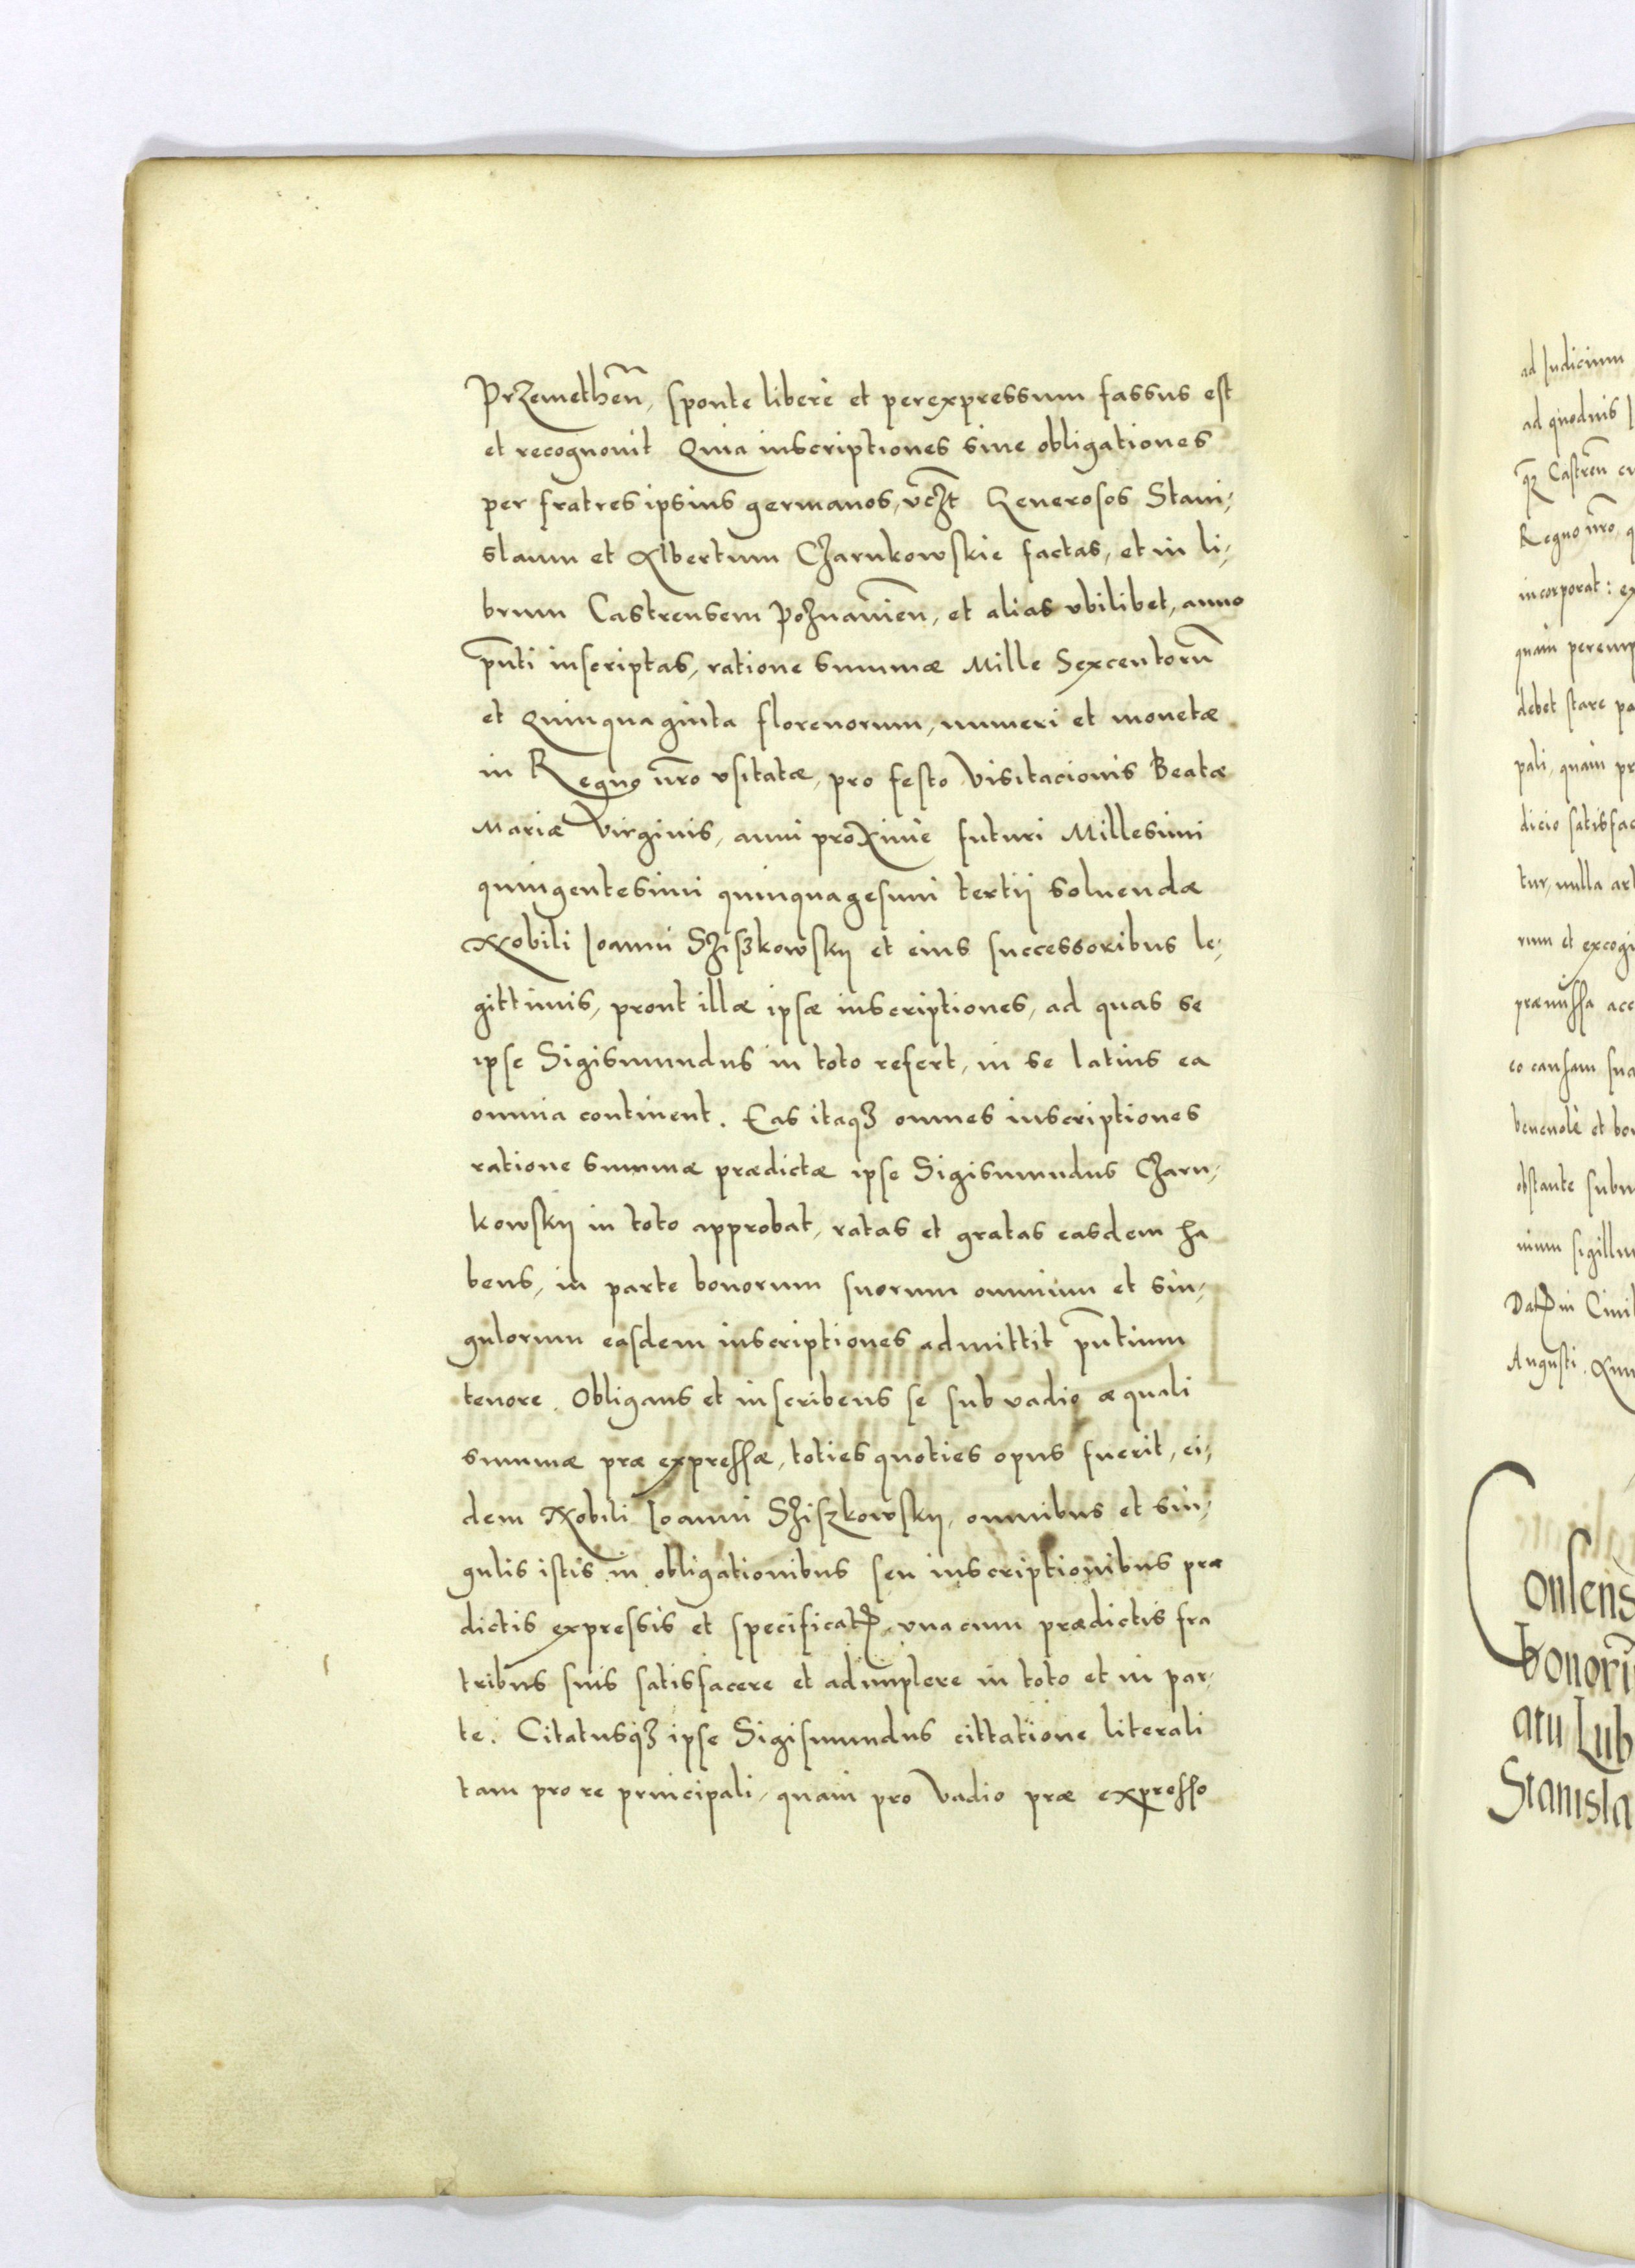 Przemetheñ, sponte liberè et perexpressum fassus est
et recognouit Quia inscriptiones siue obligationes
per fratres ipsius germanos, vcz̃t Generosos Stani-
slaum et Albertum Czarnkowskie factas, et in li-
brum Castrensem Poznanieñ, et alias vbilibet, anno
pñti inscriptas, ratione summæ Mille Sexcentorũ
et Quinquaginta florenorum, numeri et monetæ
in Regno ñro vsitatæ, pro festo Visitacionis Beatæ
Mariæ Virginis, anni proximè futuri Millesimi
quingentesimi quinquagesimi tertij soluendæ
Nobili Ioanni Sziszkowskij et eius successoribus le-
gittimis, prout illæ ipsæ inscriptiones, ad quas se
ipse Sigismundus in toto refert, in se latius ea
omnia continent. Eas itaqꝫ omnes inscriptiones
ratione summæ prædictæ ipse Sigismundus Czarn-
kowskij in toto approbat, ratas et gratas easdem ha
bens, in parte bonorum suorum omnium et sin-
gulorum easdem inscriptiones admittit pñtium
tenore. Obligans et inscribens se sub vadio æquali
summæ præ expressæ, toties quoties opus fuerit, ei-
dem Nobili Ioanni Sziszkowskij, omnibus et sin-
gulis istis in obligationibus seu inscriptionibus præ
dictis expressis et specificatꝭ, vna cum prædictis fra
tribus suis satisfacere et adimplere in toto et in par-
te. Citatusqꝫ ipse Sigismundus cittatione literali
tam pro re principali, quam pro vadio præ expresso
ad Iudicium
ad quoduis
qꝫ Castreñ
Regno ñro,
incorporat:
quam peremp
debet stare pa
pali, quam pr
dicio satisfac
tur, nulla art
rum et excogi
præmissa acc
eo causam sua
beneuolè et bo
obstante subm
nium sigillu
Datꝭ in Ciuit
Augusti.
Consens
bonorũ
atu Lub
Stanisla